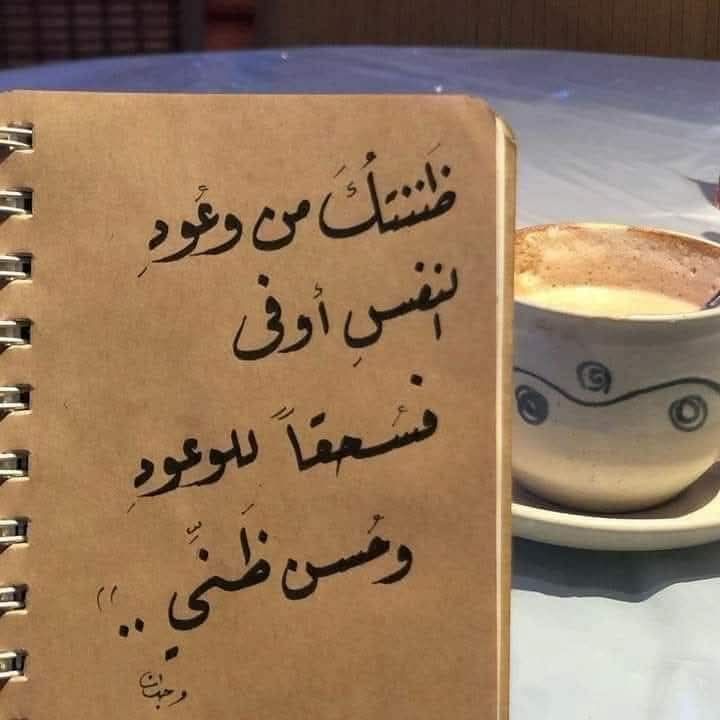 ظَننتكَُ من وعُودِ
النفسِ أوفى
فسُحقاً للوعودِ
وحُسن ظَنيِّ .. "
وجدان